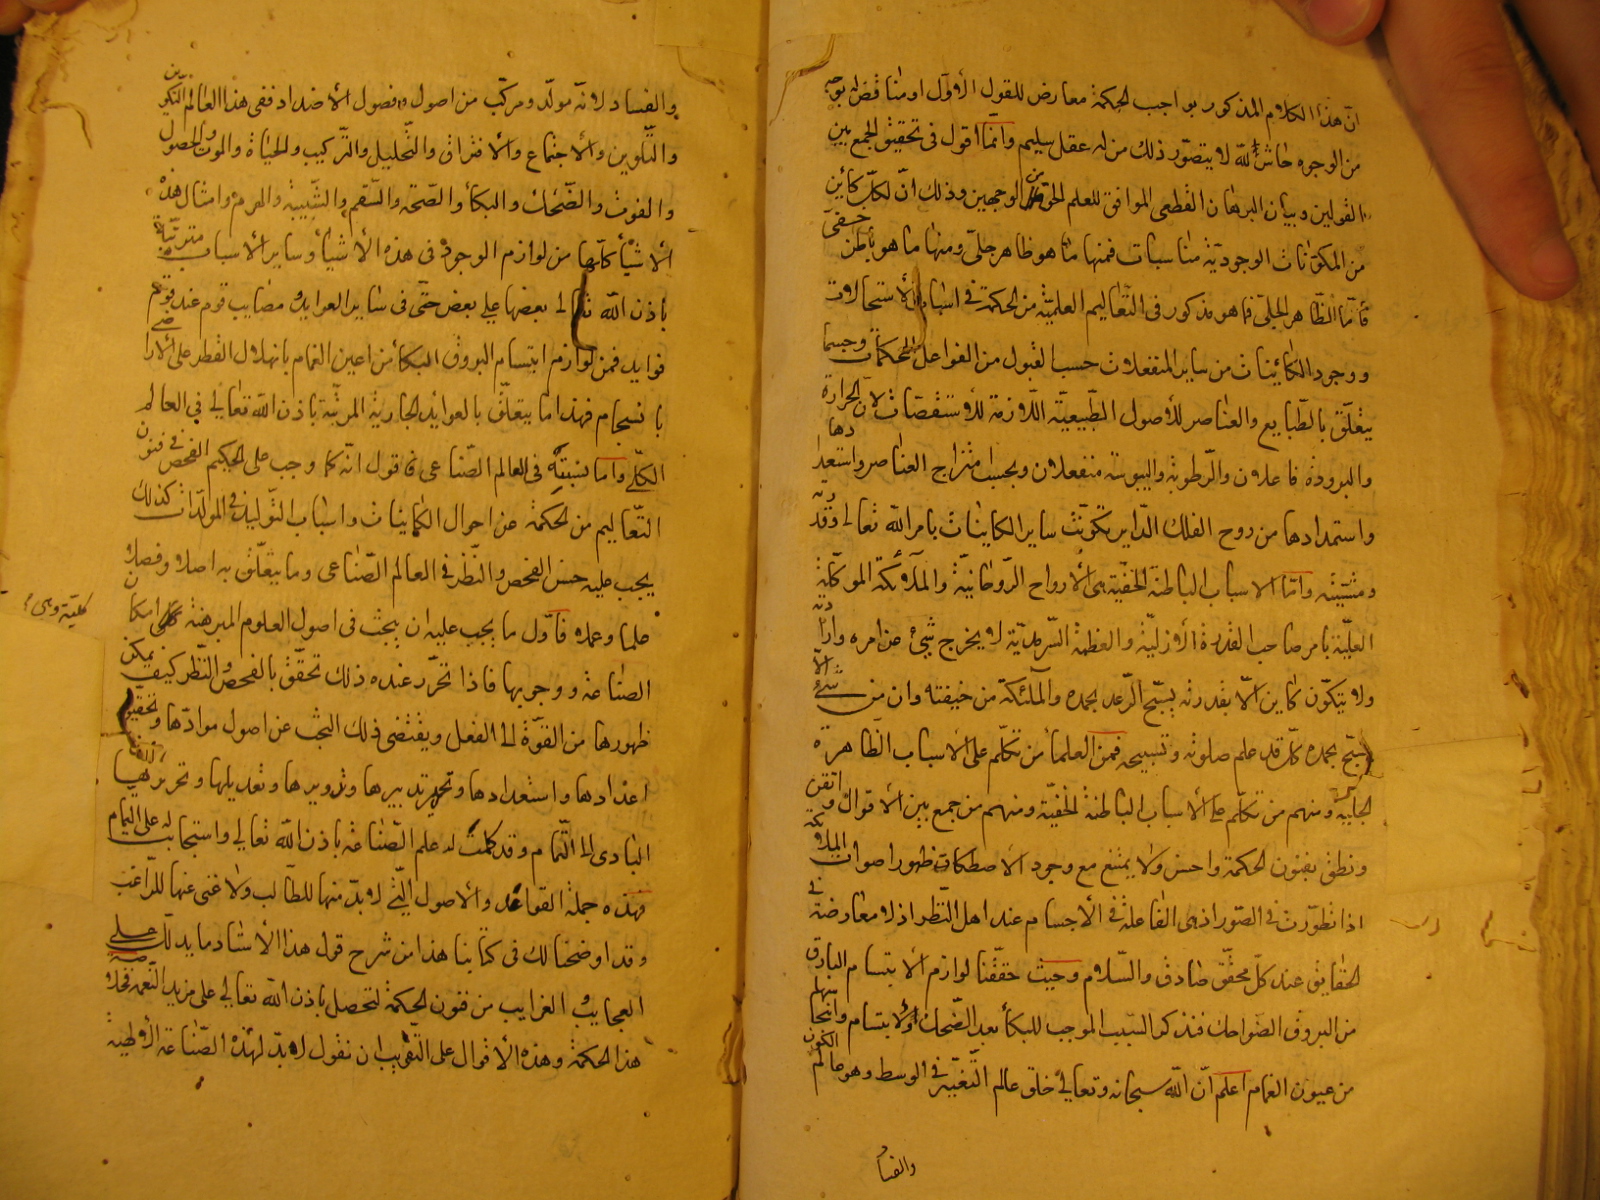 ان هذا الكلام المذكور بواجب الحكمة معارض للقول الأول او مناقض له بوجه
من الوجوه حاش لله لا يتصور ذلك من له عقل سليم وانما اقول فى تحقيق الجمع بين
القولين وبيان البرهان القطعى الموافق للعلم الحق من الوجهين وذلك ان لكل كائن
من المكونات الوجودية مناسبات فمنها ما هو ظاهر جلى ومنها ما هو باطن خفى
فأما الظاهر الجلى فما هو مذكور فى التعاليم العلمية من الحكمة فى اسباب الأستحالات
ووجود الكائينات من ساير المنفعلات حسب القبول من الفواعل المحكمات وحسبما
يتعلق بالطبايع والعناصر للأصول الطبيعية اللازمة للأستقصات لان الحرارة
والبرودة فاعلان والرطوبة واليبوسة منفعلان وبحسب امتزاج العناصر واستعدادها
واستمدادها من روح الفلك الداير تكونت ساير الكاينات بامر الله تعالى وقدرته
ومشيته واما الاسباب الباطنة الخفية هى الأرواح الروحانية والملآئكة الموكلة
العلية بامر صاحب القدرة الأزلية والعظمة السرمدية لا يخرج شئ عن امره وارادته
ولا يتكون كاين الا بقدرته يسبح الرعد بحمده والملآئكة من خيفته وان من شئ الا
يسبح بحمده كل قد علم صلوته وتسبيحه فمن العلماء من تكلم على الاسباب الظاهرة
الجلية ومنهم من تكلم على الأسباب الباطنة الخفية ومنهم من جمع بين الاقوال واتقن
ونطق بفنون الحكمة واحسن ولا يمتنع مع وجود الاصطكات ظهور اصوات الملائكة
اذا تطورت فى الصور اذ هى الفاعلة فى الأجسام عند اهل النظر اذ لا معارضة فى
الحقايق عند كل محقق صادق والسلام وحيث حققنا لوازم الابتسام البارق
من البروق الضواحك فنذكر السبب الموجب للبكأ بعد الضحك والابتسام وانحا
من عيون الغمام اعلم ان الله سبحانه وتعالى خلق عالم التغيير فى الوسط وهو عالم الكون
والفسا
والفساد لانه مولد ومركب من اصول وفصول الأضداد ففى هذا العالم التكوين
والتلوين والأجتماع والأفتراق والتحليل والتركيب والحياة والموت والحصول
والفوت والضحك والبكأ والصحة والسقم والشبيبة والهرم وامثال هذه
الأشيأ كلها من لوازم الوجود فى هذه الأشيأ وساير الأسباب مترتبة
باذن الله تعالى بعضها على بعض حتى فى ساير العوايد مصايب قوم عند قوم
فوايد فمن لوازم ابتسام البروق البكأ من اعين الغمام بانهلال القطر على الأراضى
بانسجام فهذا ما يتعلق بالعوائد الجارية المرتبة باذن الله تعالى فى العالم
الكلى واما نسبته فى العالم الصناعى فاقول انه كما وجب على الحكيم الفحص فى فنون
التعاليم من الحكمة عن احوال الكاينات واسباب التوليد فى المولدات كذلك
يجب عليه حسن الفحص والنظر فى العالم الصناعى وما يتعلق به اصلا وفصلا
علما وعملا فأول ما يجب عليه ان يبحث فى اصول العلوم المبرهنة على امكان
كلية وهى
الصناعة ووجوبها فاذا تحرر عنده ذلك تحقق بالفحص والنظر كيف يمكن
ظهورها من القوة الى الفعل ويقتضى ذلك البحث عن اصول موادها وتحقيق
اعدادها واستعدادها وتحرير تدبيرها وتدويرها وتعديلها وتحرير
المبادى الى التمام وقد كملت له علم الصناعة باذن الله تعالى واستجابت على التمام
فهذه جملة القواعد والأصول التى لا بد منها للطالب ولا غنى عنها للراغب
وقد اوضحنا لك فى كتابنا هذا من شرح قول هذا الأستاد ما يدلك على
العجايب الغرايب من فنون الحكمة لتحصل باذن الله تعالى على مزيد النعمة
هذا الحكمة وهذه الأقوال على التقريب ان نقول لا بد لهذه الصناعة الألهية